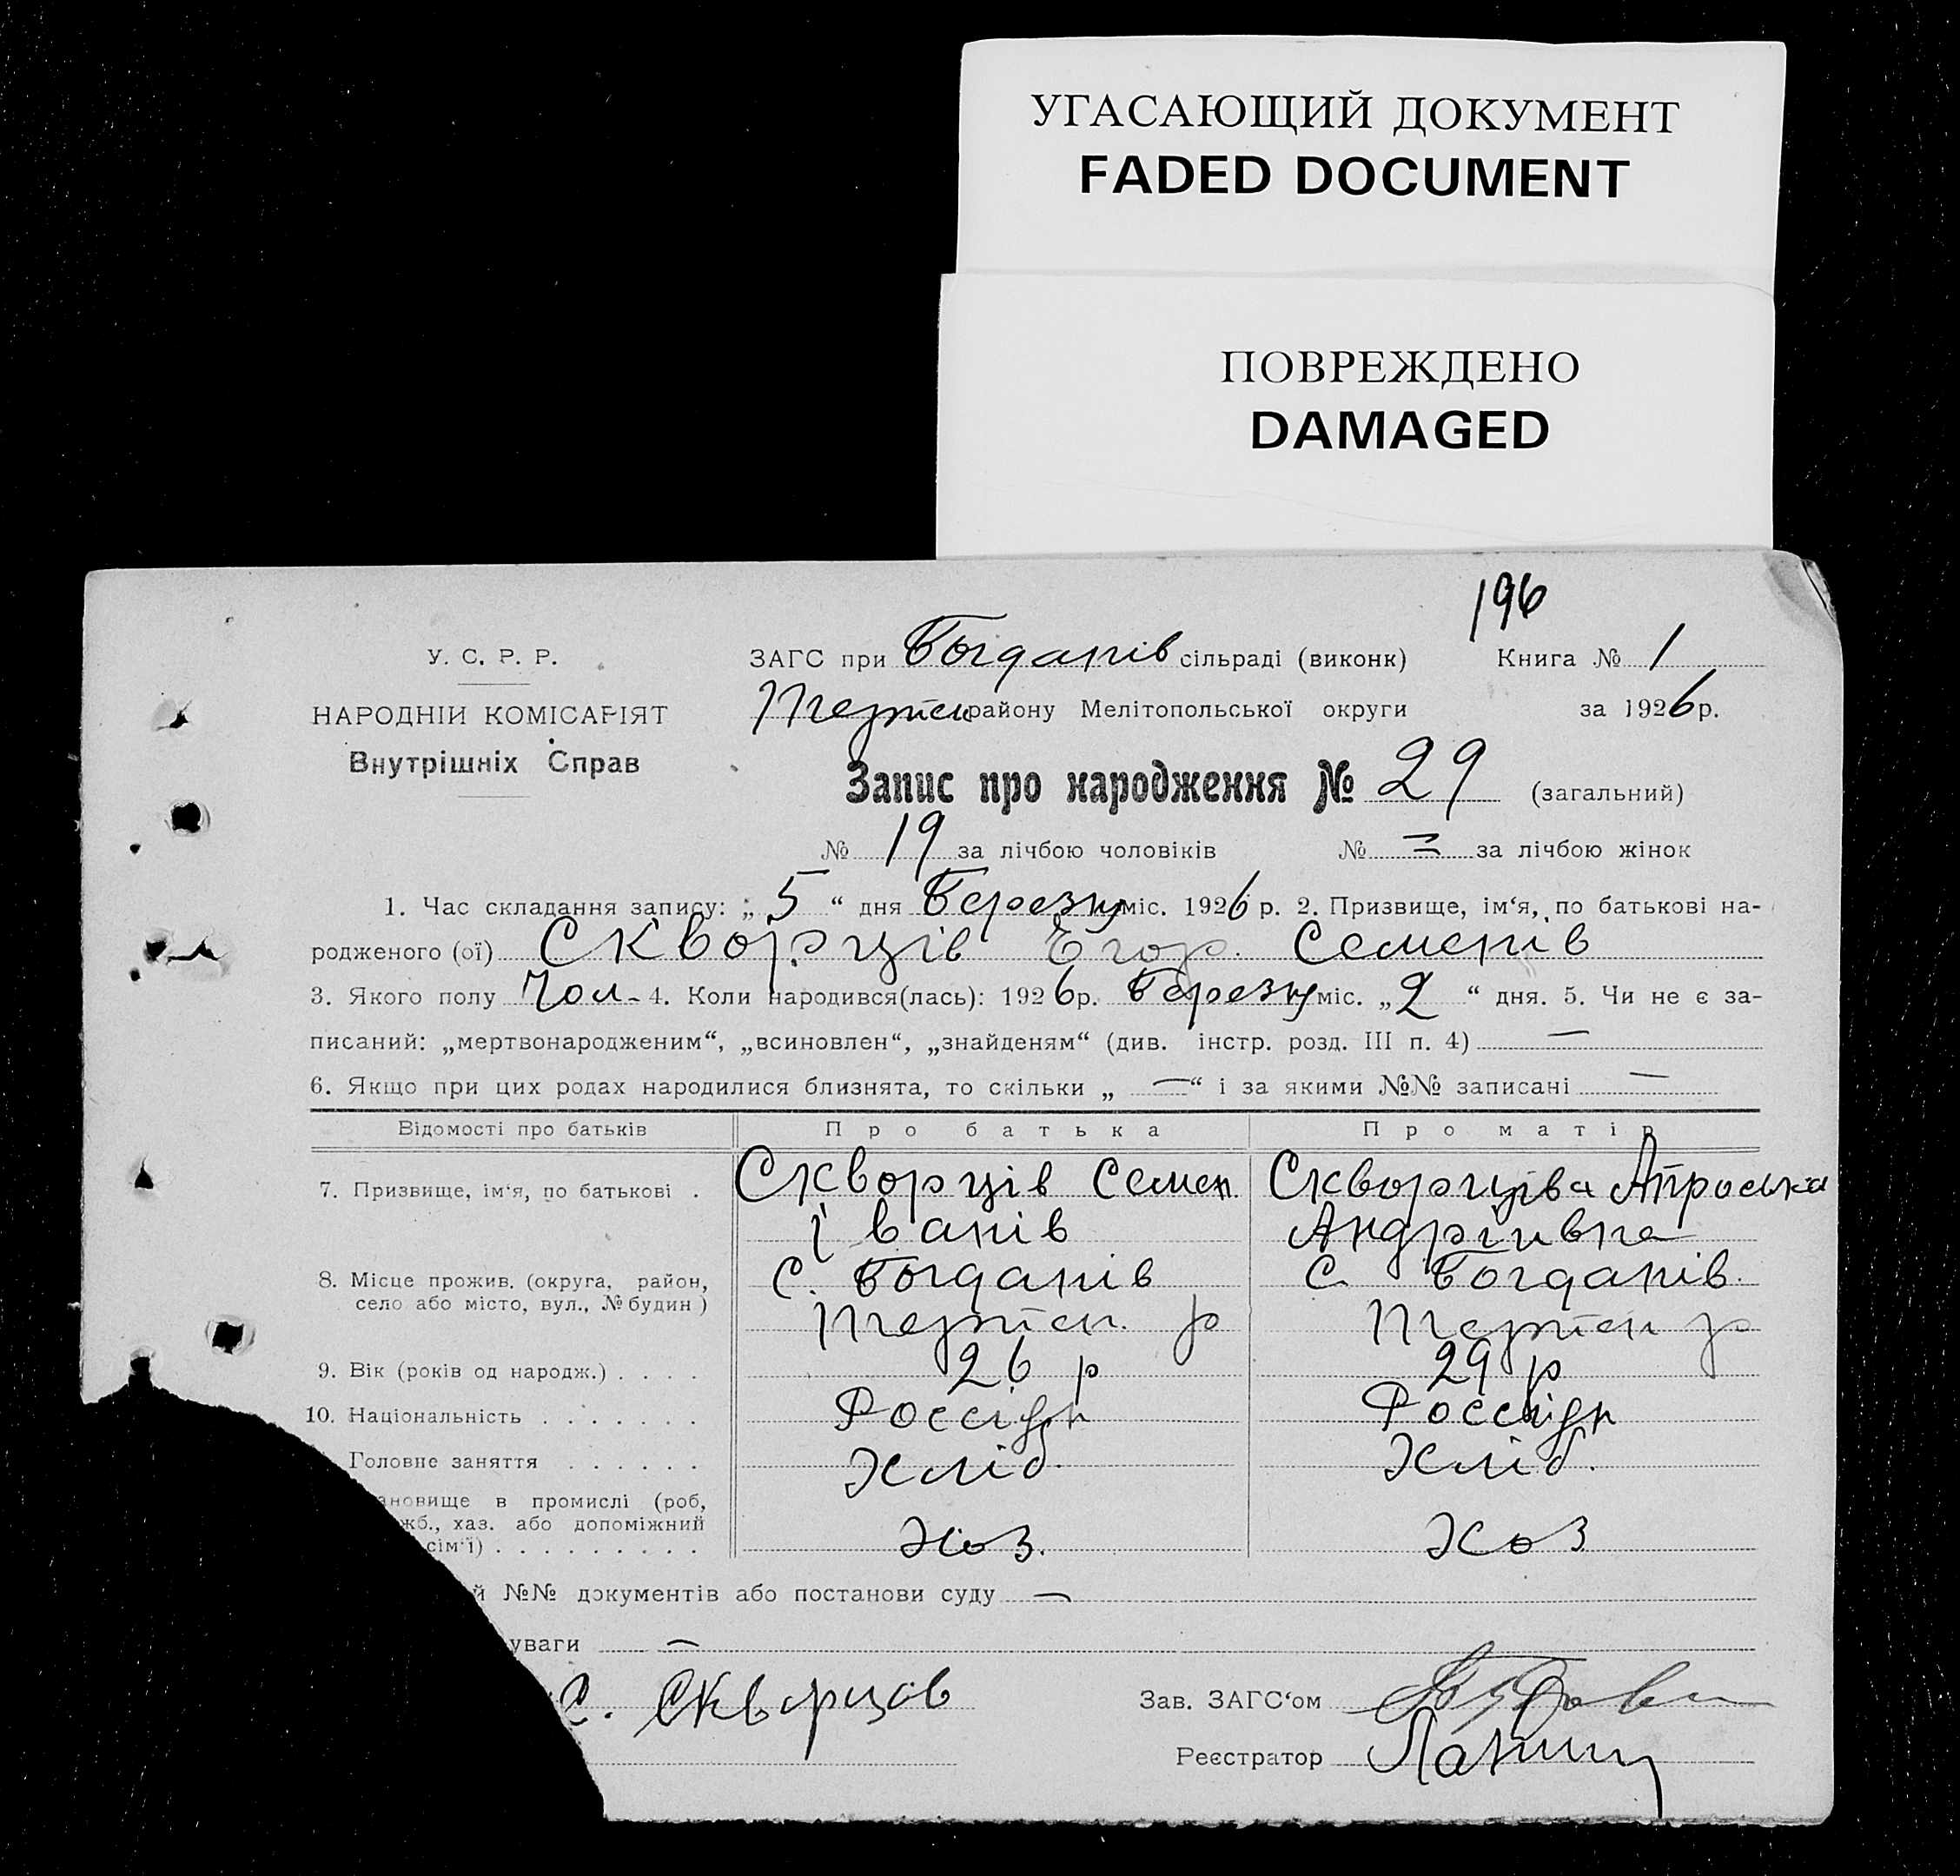 УГАСАЮЩИЙ ДОКУМЕНТ
FADED DOCUMENT
ПОВРЕЖДЕНО
DAMAGED
196
У. С. Р. Р.
НАРОДНІЙ КОМІСАРІЯТ
Внутрішніх Справ
ЗАГС при Богданів сільраді (виконк) Книга № 1
Терпен району Мелітопольської округи за 1926 р.
Запис про народження № 29 (загальний)
№ 19 за лічбою чоловіків № = за лічбою жінок
1. Час складання запису: „ 5 “ дня Березну міс. 1926 р. 2. Призвище, ім‘я, по батькові на-
родженого (ої) Скворців Егор. Семенів
3. Якого полу Чол- 4. Коли народився(лась): 1926 р. Березну міс. „ 2 “ дня. 5. Чи не є за-
писаний: „мертвонародженим“, „всиновлен“, „знайденям“ (див. інстр. розд. III п. 4) —
6. Якщо при цих родах народилися близнята, то скільки „ — “ і за якими №№ записані —
Відомості про батьків Про батька Про матір
7. Призвище, ім‘я, по батькові . Скворців Семен Скворціва Апроська
Іванів Андріивна
8. Місце прожив. (округа, район, с. Богданів с. Богданів.
село або місто, вул., № будин) Терпен. р Терпен р
9. Вік (років од народж.) . . . . 26 р 29 р
10. Національність . . . . . . . Россіян Россіян
Головне заняття . . . . . . Хліб. Хліб.
ановище в промислі (роб,
жб., хаз. або допоміжний
сім‘ї) . . . . . . . . . Хоз. Хоз
й №№ документів або постанови суду —
уваги —
С. Скворцов Зав. ЗАГС‘ом
Реєстратор